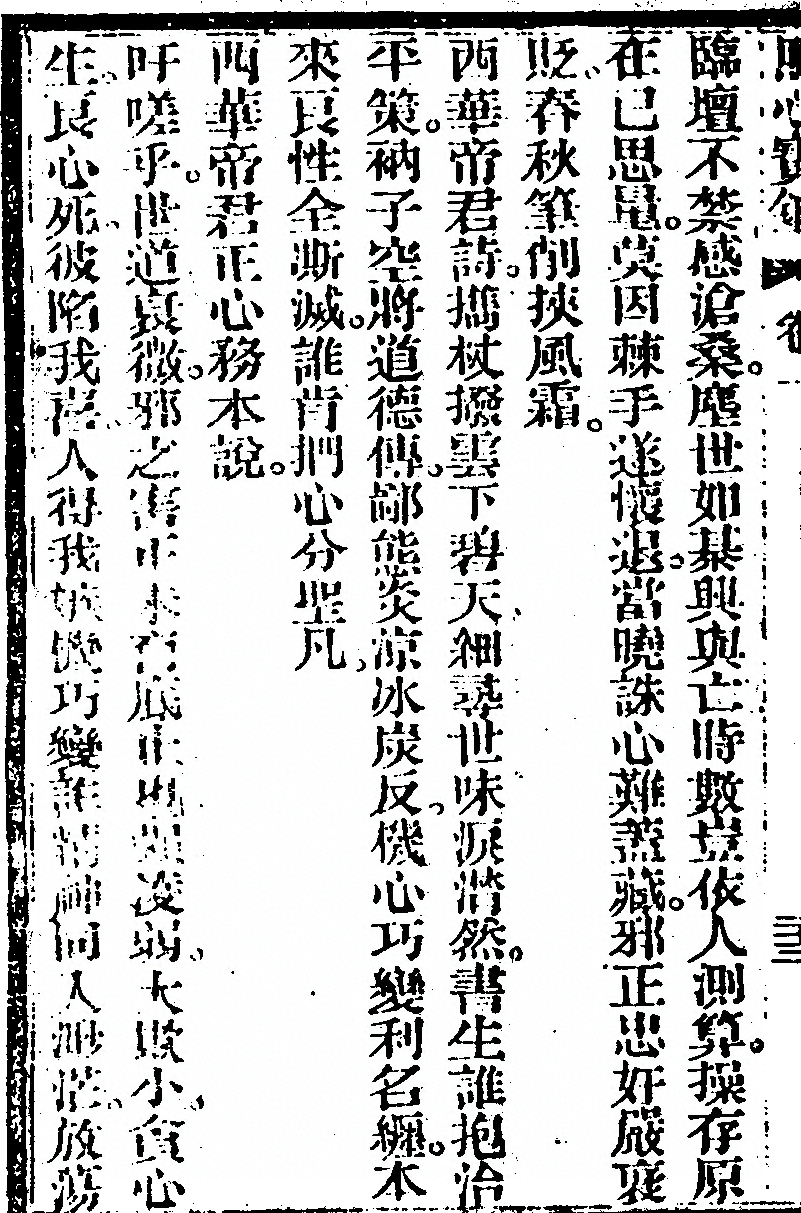 臨壇不禁感滄桑。塵世如棊興與亡時數豈依人測算。操存原
在已思量。莫因棘手遂懷退。當曉誅心難蓋藏。邪正忠奸嚴褒
貶、春秋筆削挾風霜。
西華帝君詩。攜杖撥雲下碧天、細尋世味淚潸然。書生誰抱治
平策。衲子空將道德傳。鄙態炎涼冰炭反、機心巧變利名纒。本
來良性全澌滅。誰肯捫心分聖凡、
西華帝君正心務本說。
吁嗟乎。世道衰微。邪之害正未有底止也 沒弱、大欺小貪心
生、良心死、彼陷我害、人得我 巧變 精神 人 茫、放蕩